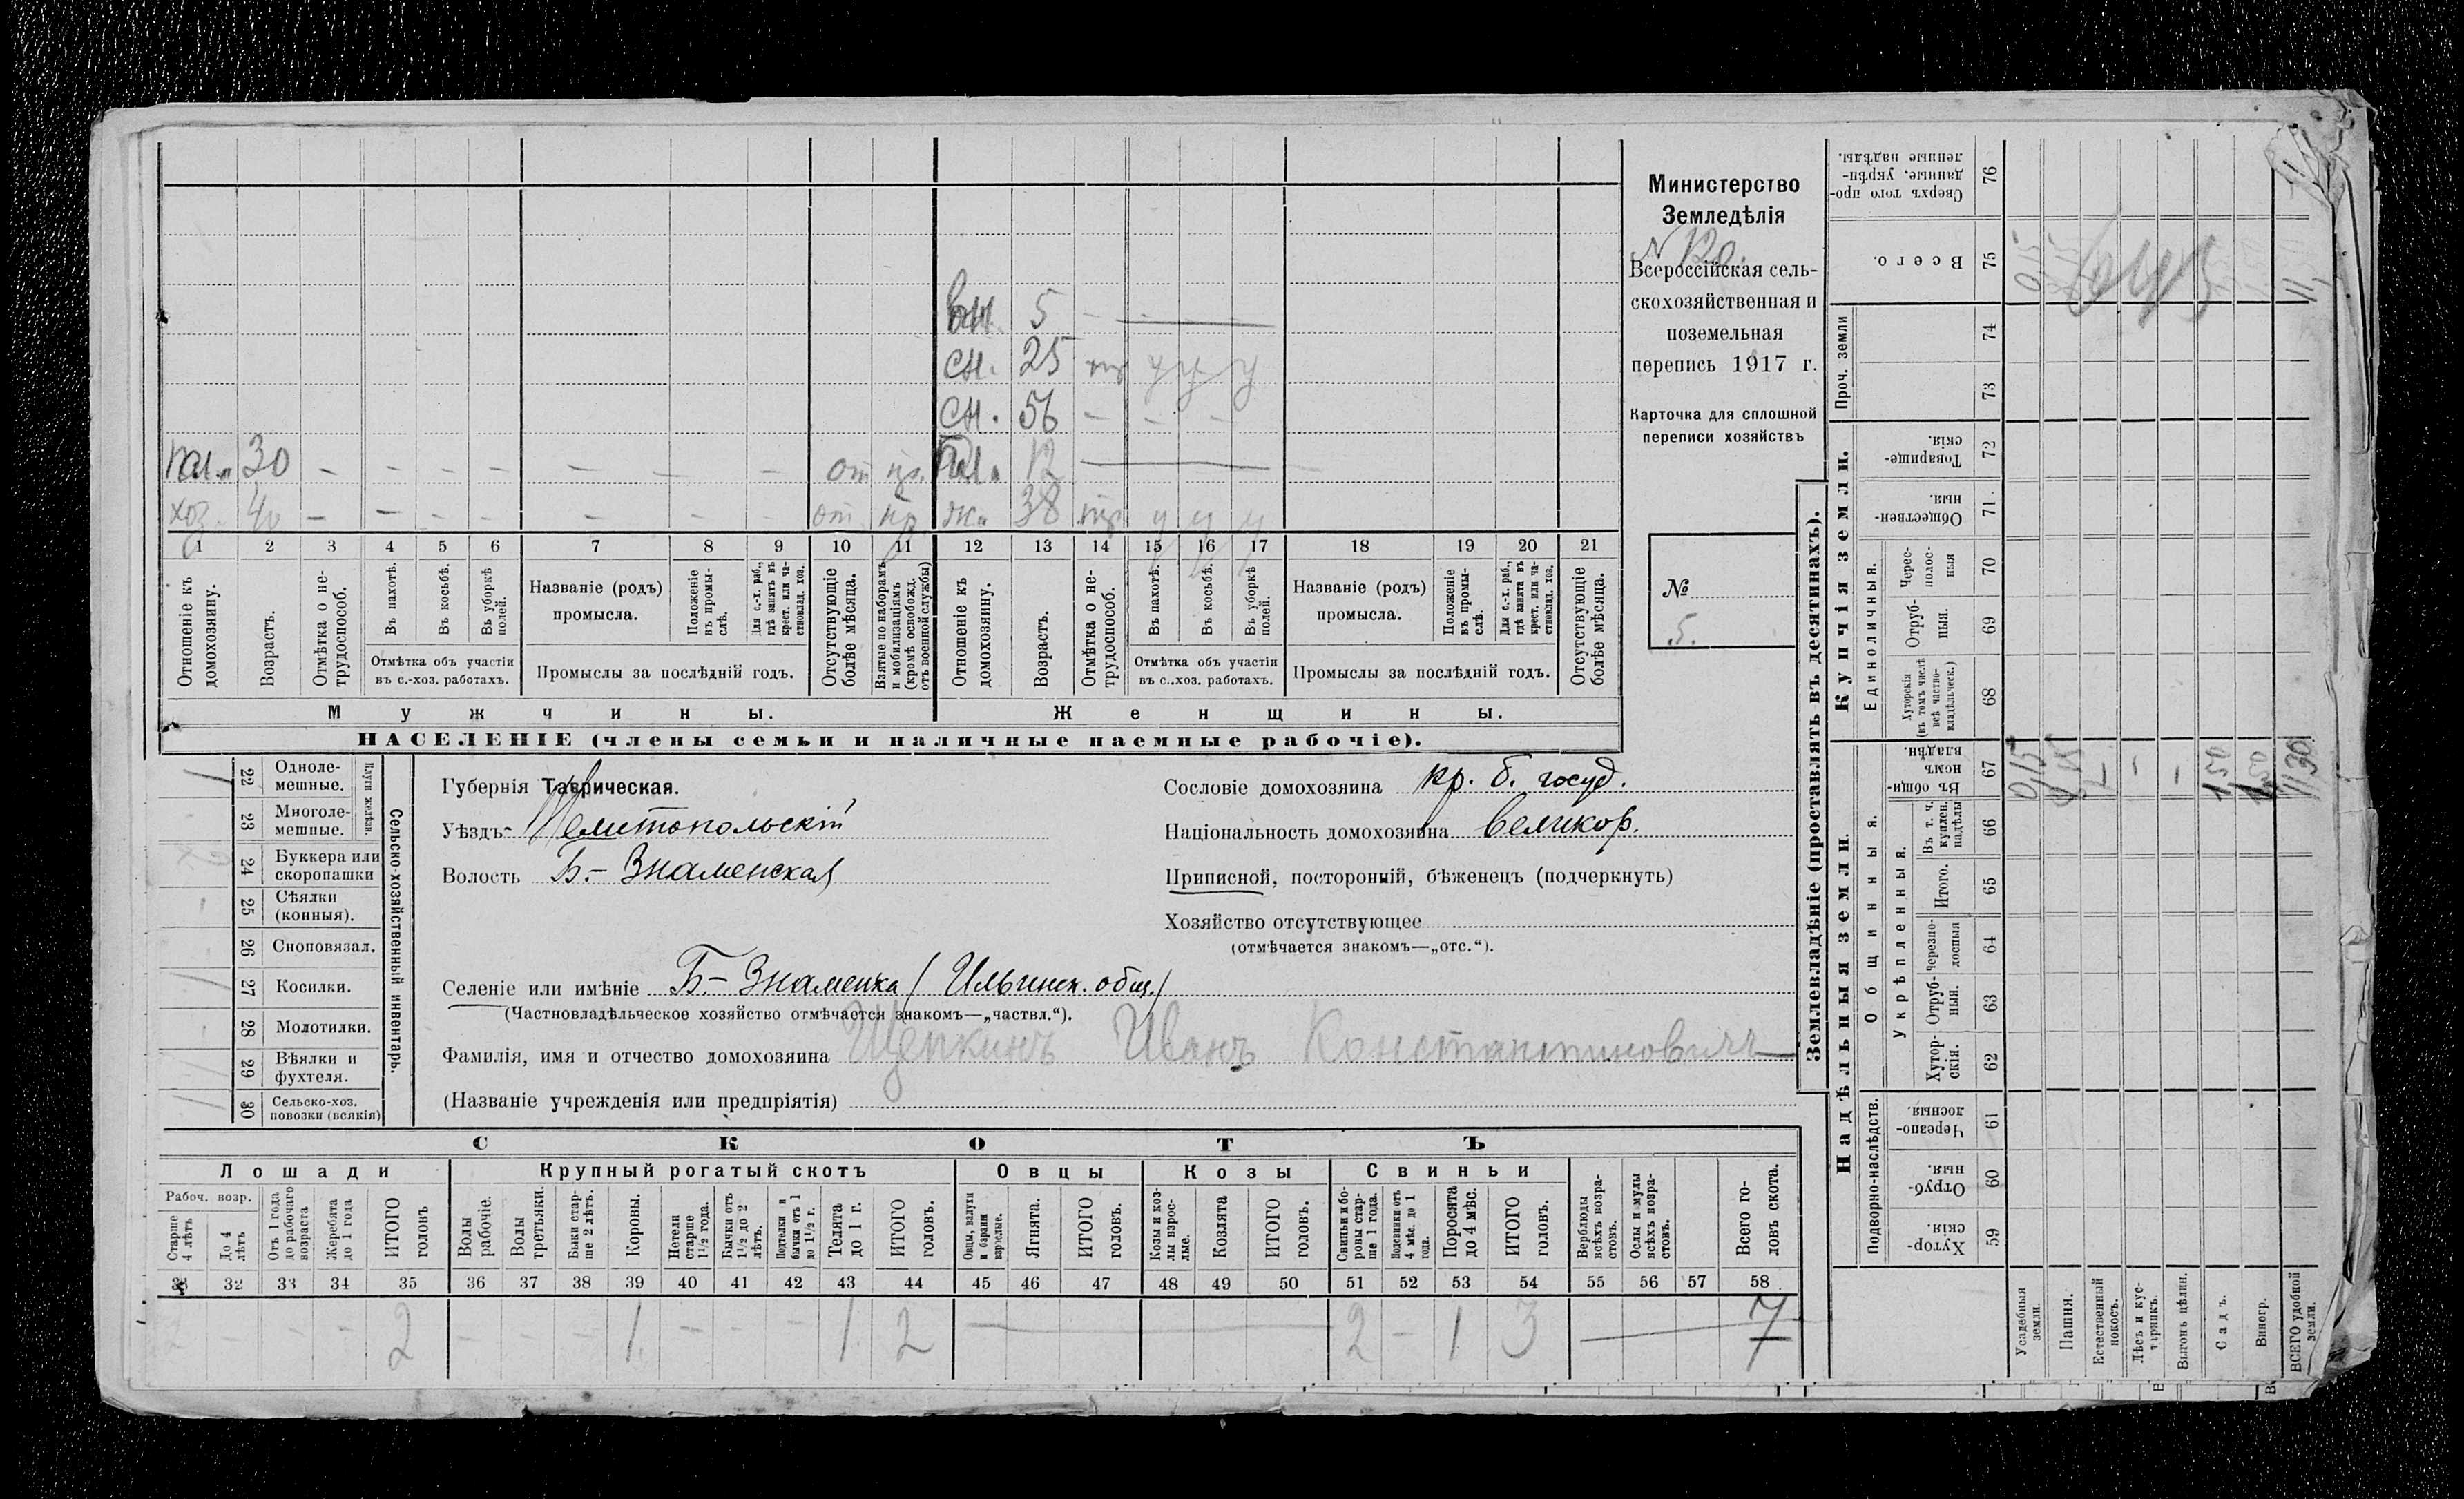 Министерство
Земледѣлія
N 120.
Всероссійская сель-
скохозяйственная и
поземельная
перепись 1917 г.
Карточка для сплошной
переписи хозяйствъ
№
5.
5
сн. 25
сн. 56
30 - - - - - - - от 12
хоз. 40 - - - - - - - от ж. 38
1 2 3 4 5 6 7 8 9 10 11 12 13 14 15 16 17 18 19 20 21
Отношеніе къ домохозяину.
Возрастъ.
Отмѣтка о не-трудоспособ.
Въ пахотѣ.
Въ косьбѣ.
Въ уборкѣ полей.
Отмѣтка объ участіи въ с.-хоз. работахъ.
Названіе (родъ) промысла.
Положеніе въ промы-слѣ.
Для с.-х. раб., гдѣ занятъ въ крест. или ча-стновлад. хоз.
Промыслы за послѣдній годъ.
Отсутствующіе болѣе мѣсяца.
Взятые по наборамъ и мобилизаціямъ (кромѣ освобожд. отъ военной службы)
Отношеніе къ домохозяину.
Возрастъ.
Отмѣтка о не-трудоспособ.
Въ пахотѣ.
Въ косьбѣ.
Въ уборкѣ полей.
Отмѣтка объ участіи въ с..хоз. работахъ.
Названіе (родъ) промысла.
Положеніе въ промы-слѣ.
Для с.-х. раб., гдѣ занята въ крест. или ча-стновлад. хоз.
Промыслы за послѣдній годъ.
Отсутствующіе болѣе мѣсяца.
Мужчины. Женщины.
НАСЕЛЕНІЕ (члены семьи и наличные наемные рабочіе).
22 Одноле-мешные.
23 Многоле-мешные.
Плуги желѣзн.
24 Буккера или скоропашки
25 Сѣялки (конныя).
26 Сноповязал.
27 Косилки.
28 Молотилки.
29 Вѣялки и фухтеля.
30 Сельско-хоз. повозки (всякія)
Сельско-хозяйственный инвентарь.
Губернія Таврическая.
Уѣздъ Мелитопольскій
Волость Б.- Знаменская
Селеніе или имѣніе Б.- Знаменка (Ильинск. общ.)
(Частновладѣльческое хозяйство отмѣчается знакомъ—„частвл.“).
Фамилія, имя и отчество домохозяина Щепкинъ Иванъ Константиновичъ
(Названіе учрежденія или предпріятія)
Сословіе домохозяина кр. б. госуд.
Національность домохозяина великор.
Приписной, посторонній, бѣженецъ (подчеркнуть)
Хозяйство отсутствующее
(отмѣчается знакомъ—„отс.“).
СКОТЪ
Лошади Крупный рогатый скотъ Овцы Козы Свиньи
Рабоч. возр.
Старше 4 лѣтъ
До 4 лѣтъ
Отъ 1 года до рабочаго возраста
Жеребята до 1 года
ИТОГО головъ
Волы рабочіе.
Волы третьяки.
Быки стар-ше 2 лѣтъ.
Коровы.
Нетели старше 1½ года.
Бычки отъ 1½ до 2 лѣтъ.
Подтелки и бычки отъ 1 до 1½ г.
Телята до 1 г.
ИТОГО головъ.
Овцы, валухи и бараны взрослые.
Ягнята.
ИТОГО головъ.
Козы и коз-лы взрос-лые.
Козлята
ИТОГО головъ.
Свиньи и бо-ровы стар-ше 1 года.
Подсвинки отъ 4 мѣс. до 1 года.
Поросята до 4 мѣс.
ИТОГО головъ.
Верблюды всѣхъ возра-стовъ.
Ослы и мулы всѣхъ возра-стовъ.
Всего го-ловъ скота.
31 32 33 34 35 36 37 38 39 40 41 42 43 44 45 46 47 48 49 50 51 52 53 54 55 56 57 58
- - 2 - - - 1 - - - 1 2 2 - 1 3 7
Землевладѣніе (проставлять въ десятинахъ).
Надѣльныя земли. Купчія земли.
Подворно-наслѣдств.
Общинныя.
Укрѣпленныя.
Единоличныя.
Проч. земли
Хутор-скія. 59
Отруб-ныя. 60
Черезпо-лосныя. 61
Хутор-скія. 62
Отруб-ныя. 63
Черезпо-лосныя 64
Итого. 65
Въ т. ч. куплен. надѣлы 66
Въ общи-номъ владѣн. 67
Хуторскія (въ томъ числѣ всѣ частно-владѣльческ.) 68
Отруб-ныя. 69
Черес-полос-ныя 70
Обществен-ныя. 71
Товарище-скія. 72
73
74
Всего. 75
Сверхъ того про-данные, укрѣп-ленные надѣлы. 76
Усадебныя земли.
Пашня.
Естественный покосъ.
Лѣсъ и кус-тарникъ.
Выгонъ цѣлин.
Садъ.
Виногр.
ВСЕГО удобной земли.
0,15
1,50
11,30